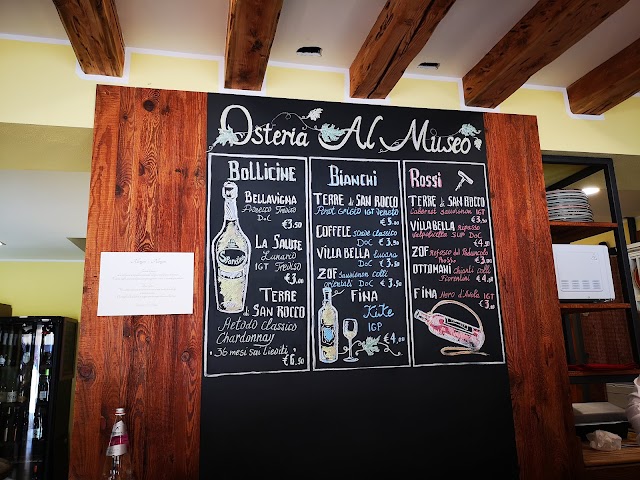 Osteria Al Museo
Bollicine
Bellavigna
Prosecco Treviso
DOC
€3.50
La Salute
Lunario
IGT Treviso
€3.50
Terre
di San Rocco
Metodo Classico
Chardonnay
36 mesi sui Lieviti
€6.50
Bianchi
Terre di San Rocco
Pinot Grigio IGT Veneto
Coffele Soave Classico
DOC €3.50
Villa Bella Lugana
DOC €3.50
ZOF Sauvignon Colli
orientali DOC
Fina
Kike
IGP
€4,00
Rossi
Terre di San Rocco
Cabernet Sauvignon IGT
€3.00
Villa Bella ripasso
Valpolicella SUP DOC
€4.50
ZOF Refosco dal Peduncolo
Rosso €3.00
Ottomani Chianti Colli
Fiorentini €4.00
Fina Nero d'Avola IGT
€3.50